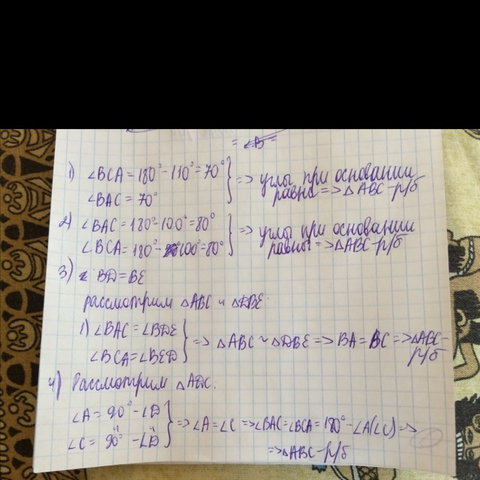 = ∠B
1) ∠BCA = 180° - 110° = 70°
∠BAC = 70°
} => углы при основании
равны => △ABC - р/б
2) ∠BAC = 180° - 100° = 80°
∠BCA = 180° - 100° = 80°
} => углы при основании
равны => △ABC - р/б
3) BD = BE
рассмотрим △ABC и △DBE.
1) ∠BAC = ∠BDE
∠BCA = ∠BED
} => △ABC ~ △DBE => BA = BC => △ABC -
р/б
4) Рассмотрим
∠A = 90° - ∠D
∠C = 90° - ∠D
} => ∠A = ∠C => ∠BAC = ∠BCA = 180° - ∠A(∠C) =>
=> △ABC - р/б